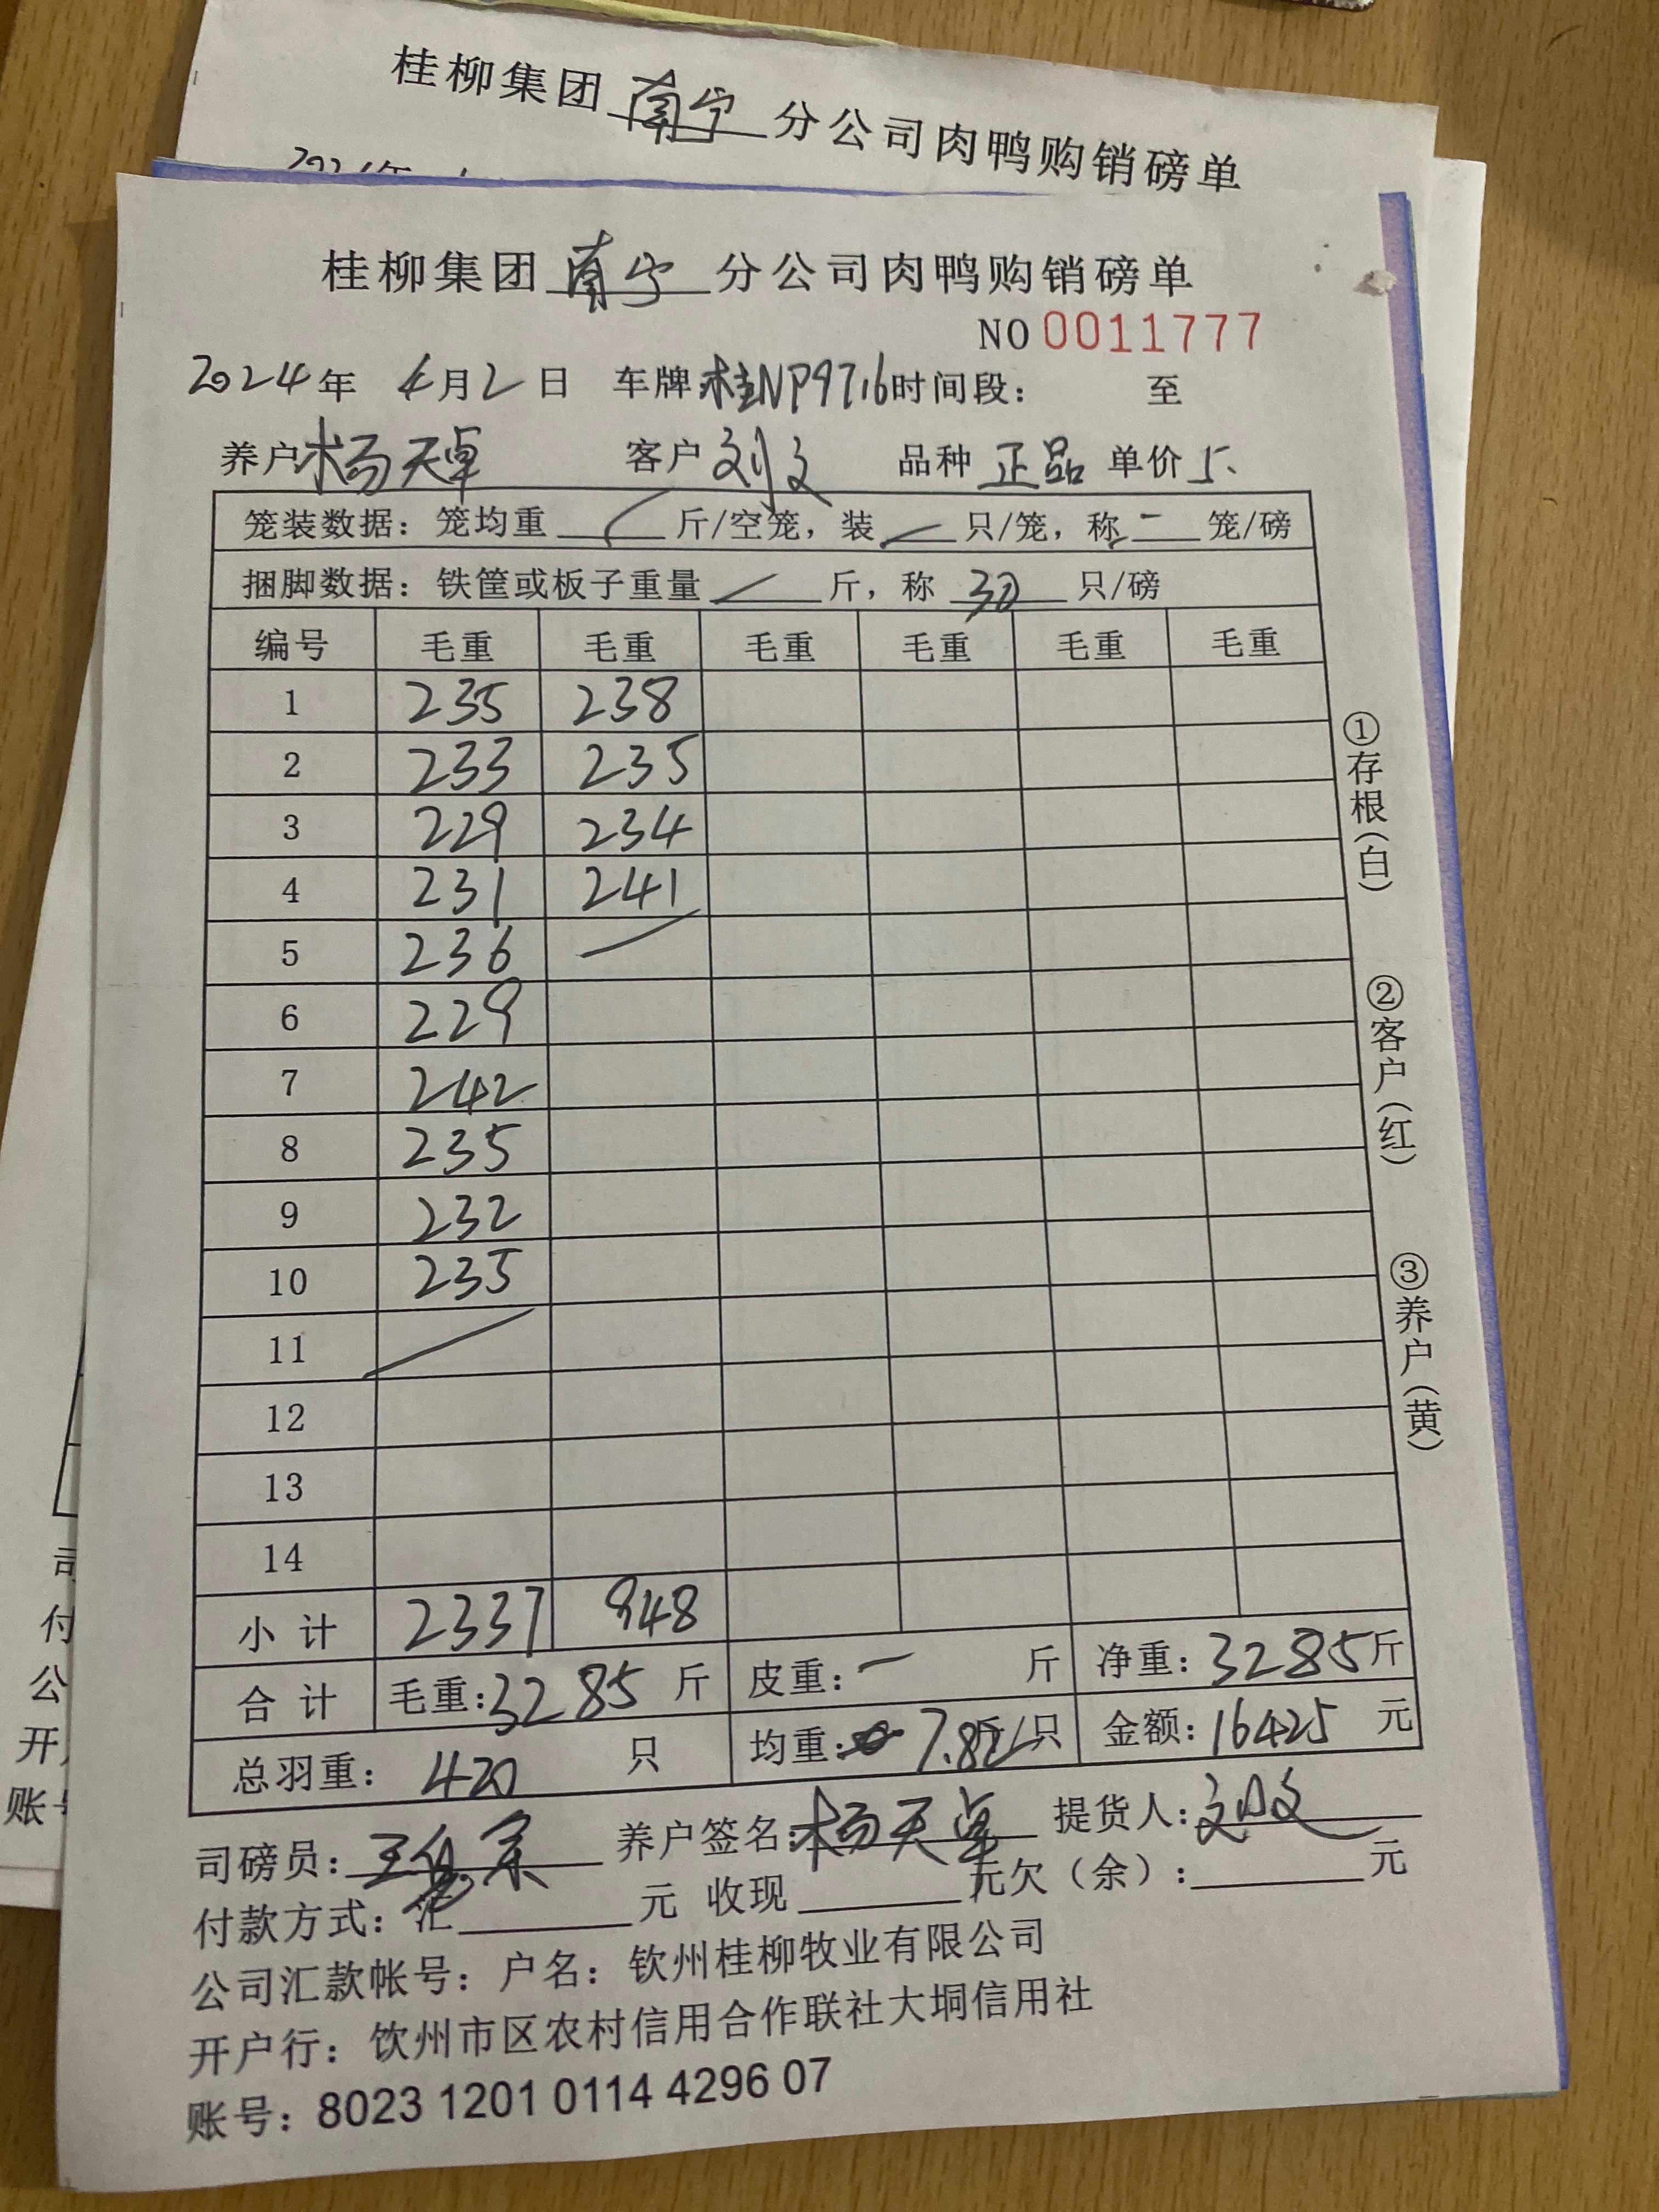 桂柳集团南宁分公司肉鸭购销磅单
桂柳集团南宁分公司肉鸭购销磅单
NO 0011777
2024年 4月2日 车牌:桂NP9716 时间段: 至
养户 杨天卓 客户 刘文 品种 正品 单价 5.
笼装数据:笼均重 斤/空笼,装 只/笼,称 笼/磅
捆脚数据:铁筐或板子重量 斤,称 30 只/磅
编号 毛重 毛重 毛重 毛重 毛重 毛重
1 235 238
2 233 235
3 229 234
4 231 241
5 236
6 229
7 242
8 235
9 232
10 235
11
12
13
14
小计 2337 948
合计 毛重:3285 斤 皮重:一 斤 净重:3285斤
总羽重: 420 只 均重: 7.82 斤/只 金额:16425 元
司磅员: 养户签名:杨天卓 提货人:刘文
付款方式:汇 元 收现 元欠(余): 元
公司汇款帐号:户名:钦州桂柳牧业有限公司
开户行:钦州市区农村信用合作联社大垌信用社
账号:8023 1201 0114 4296 07
①存根(白)
②客户(红)
③养户(黄)
司
付
公
开
账